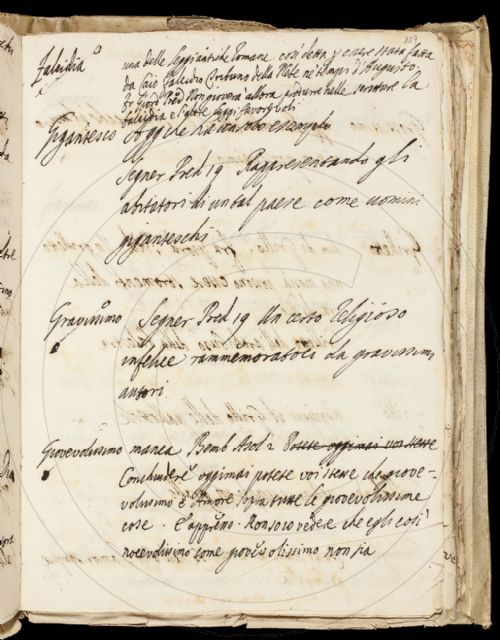 109
Falcidia una delle leggi antiche Romane così detta p essere stata fatta
da Caio Falcidio Tribuno della Plebe ne' tempi d'Augusto.
Fr Giord Pred Non gioverà allora produrre nelle scritture la
Falcidia e l'altre leggi favorevoli
Gigantesco Aggi che ha
esemplo
Segner Pred 19 Rappresentando gli
abitatori di un tal paese come uomini
giganteschi
Gravissimo Segner Pred 19 Un certo religioso
infelice rammemoratoci da gravissimi
autori
Giovevolissimo manca Bemb Asol 2 Potete oggimai voi stesse
Conchiudere oggimai potete voi stesse che giove-
volissimo è Amore sopra tutte le giovevolissime
cose. E appreso. Non so io vedere che egli così
nocevolissimo come giovevolissimo non sia